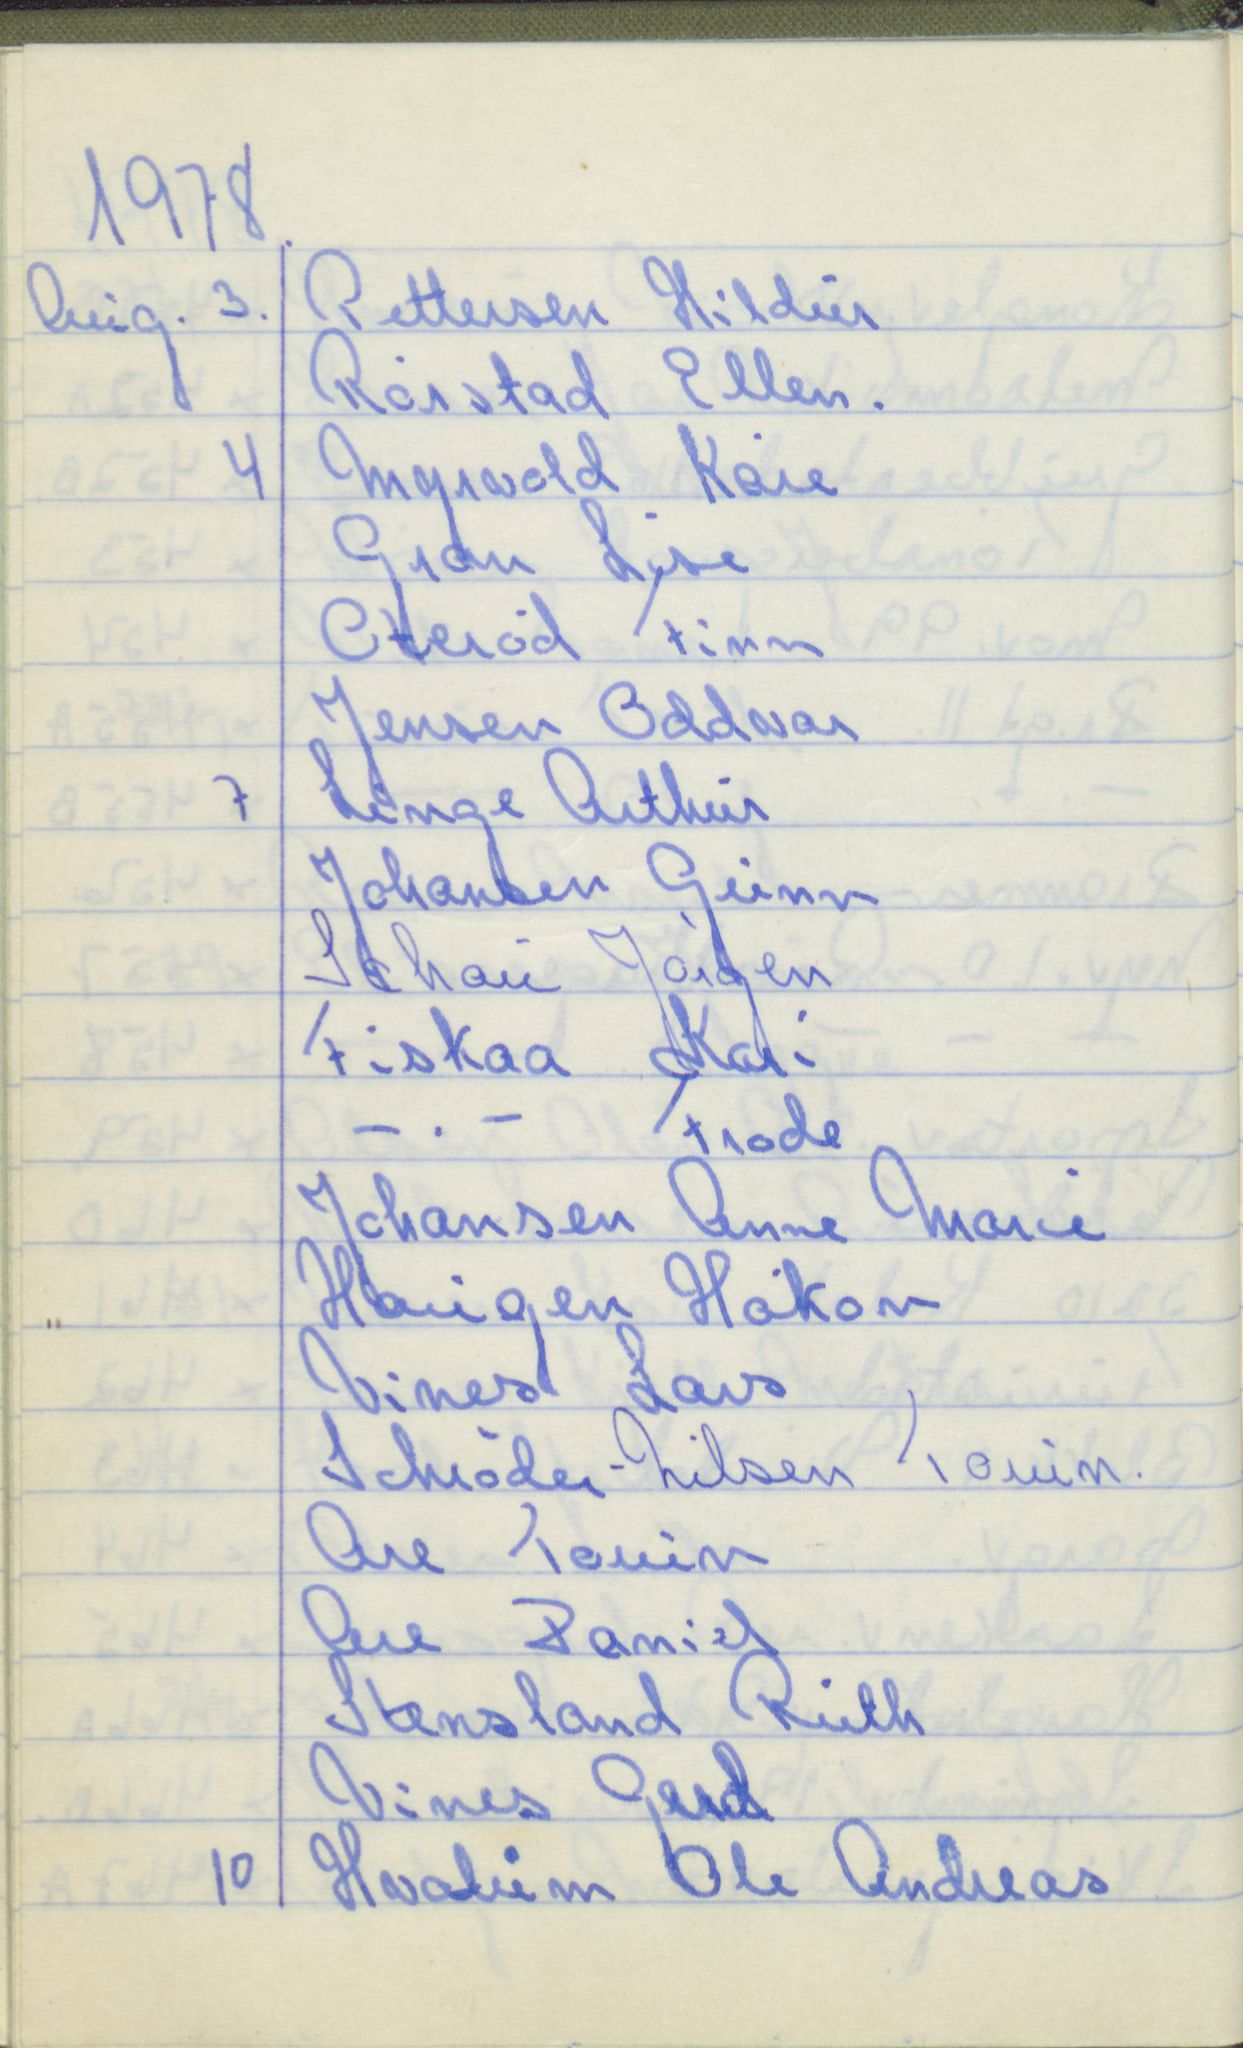 1978.
Aug. 3. Pettersen Hildur
Rörstad Ellen.
4 Myrvold Kåre
Gran Lise
Oteröd Finn
Jensen Oddvar
7 Linge Arthur
Johansen Gunn
Schou Jörgen
Fiskaa Kari
— . — Frode
Johansen Anne Marie
Haugen Håkon
Vines Lars
Schröder-Nilsen Torun.
Are Torun
Are Daniel
Stensland Ruth
Vines Gerd
10 Hvalum Ole Andreas